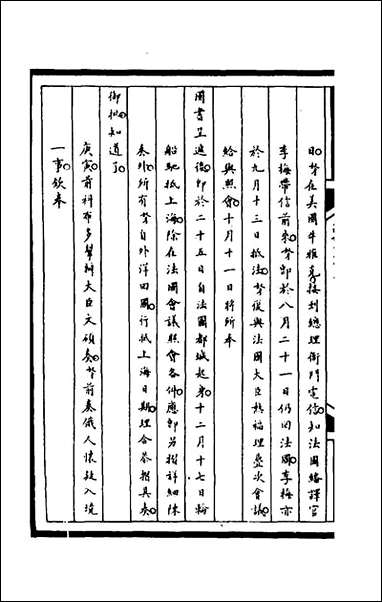 日努在美國牛雅喜接到總理衙門電信知法國繙譯官
李梅帶信前來努即於八月二十一日仍回法國李梅亦
於九月十三日抵法努復與法國大臣熱福理疊次會議
給與照會十月十一日將所奉
國書呈遞後即於二十五日自法國都城起來十二月十七日輪
船馳抵上海除在法國會議照會各件應即另摺詳細陳
奏外所有努自外洋回國行抵上海日期理合恭摺具奏
御批知道了
庚寅前科布多幫辦大臣文碩奏努前奏俄人懷疑入境
一事欽奉